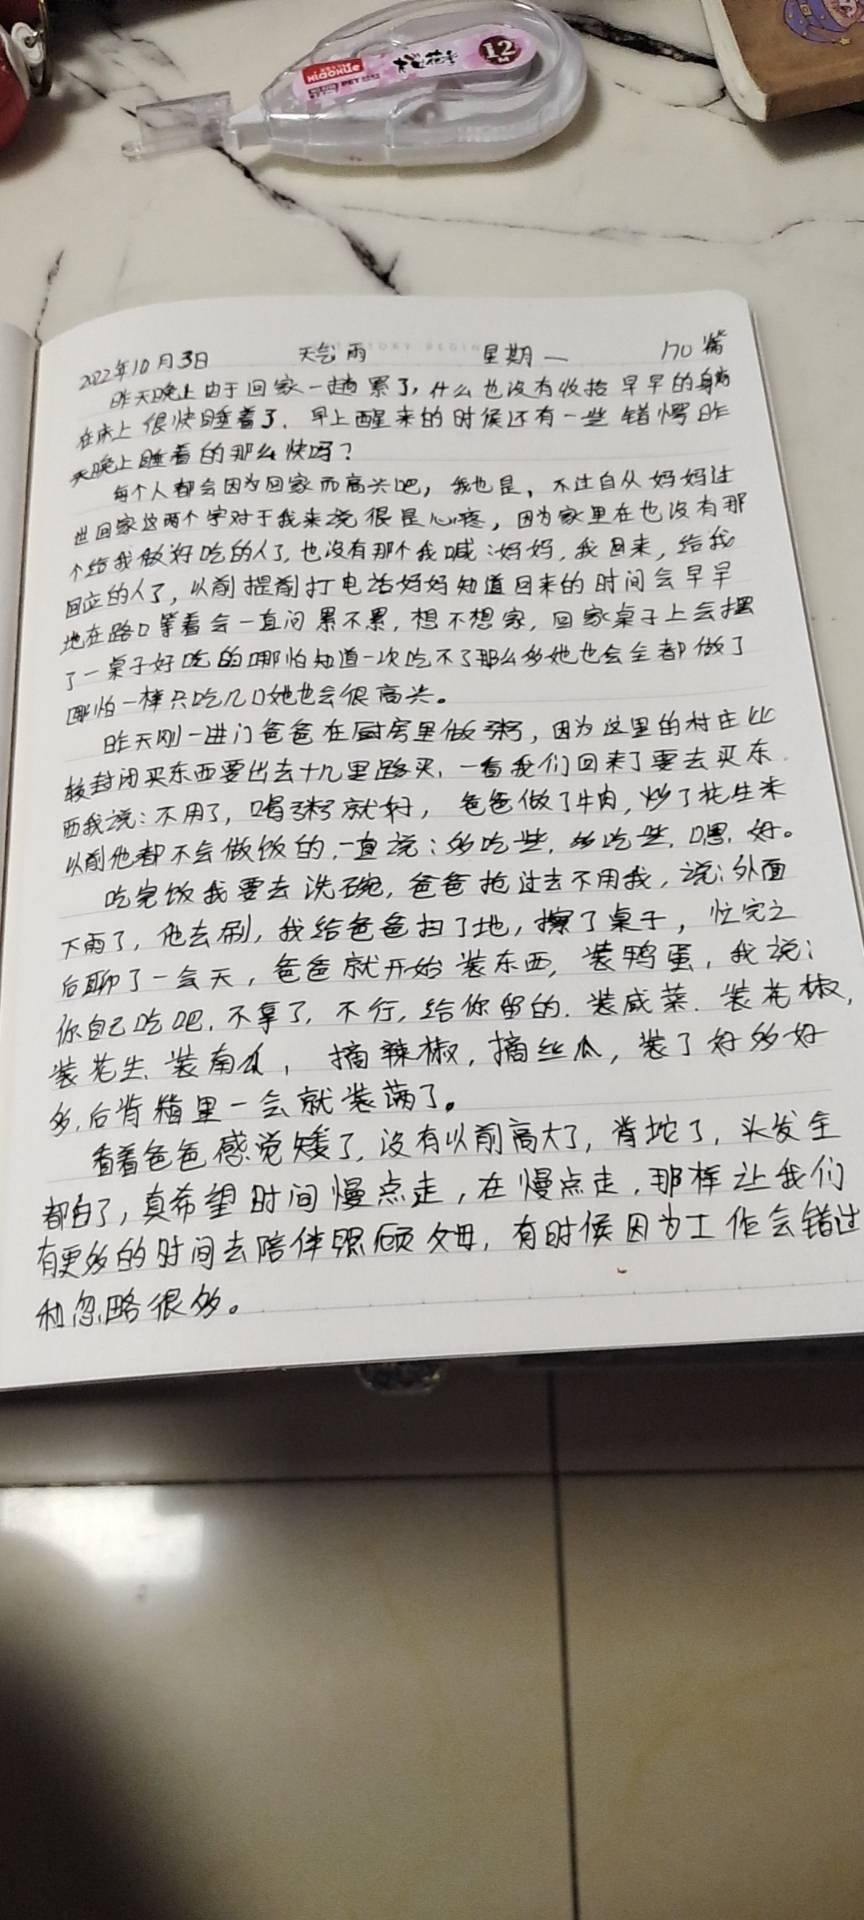 XIAOXUE
12
M
PET
2022年10月3日 天气 雨 星期一 170篇
昨天晚上由于回家一趟累了，什么也没有收拾早早的躺
在床上很快睡着了．早上醒来的时候还有一些错愕昨
天晚上睡着的那么快吗？
每个人都会因为回家而高兴吧，我也是，不过自从妈妈过
世回家这两个字对于我来说很是心疼，因为家里在也没有那
个给我做好吃的人了，也没有那个我喊：妈妈，我回来，给我
回应的人了，以前提前打电话妈妈知道回来的时间会早早
地在路口等着会一直问累不累，想不想家，回家桌子上会摆
了一桌子好吃的哪怕知道一次吃不了那么多她也会全都做了
哪怕一样只吃几口她也会很高兴。
昨天刚一进门爸爸在厨房里做粥，因为这里的村庄比
较封闭买东西要出去十几里路买，一看我们回来了要去买东
西我说：不用了，喝粥就好，爸爸做了牛肉，炒了花生米
以前他都不会做饭的，一直说：多吃些，多吃些，嗯，好。
吃完饭我要去洗碗，爸爸抢过去不用我，说：外面
下雨了，他去刷，我给爸爸扫了地，擦了桌子，忙完之
后聊了一会天，爸爸就开始装东西，装鸭蛋，我说：
你自己吃吧，不拿了，不行，给你留的．装咸菜．装花椒，
装花生、装南瓜，摘辣椒，摘丝瓜，装了好多好
多，后背箱里一会就装满了。
看着爸爸感觉矮了，没有以前高大了，背坨了，头发全
都白了，真希望时间慢点走，在慢点走，那样让我们
有更多的时间去陪伴照顾父母，有时候因为工作会错过
和忽略很多。